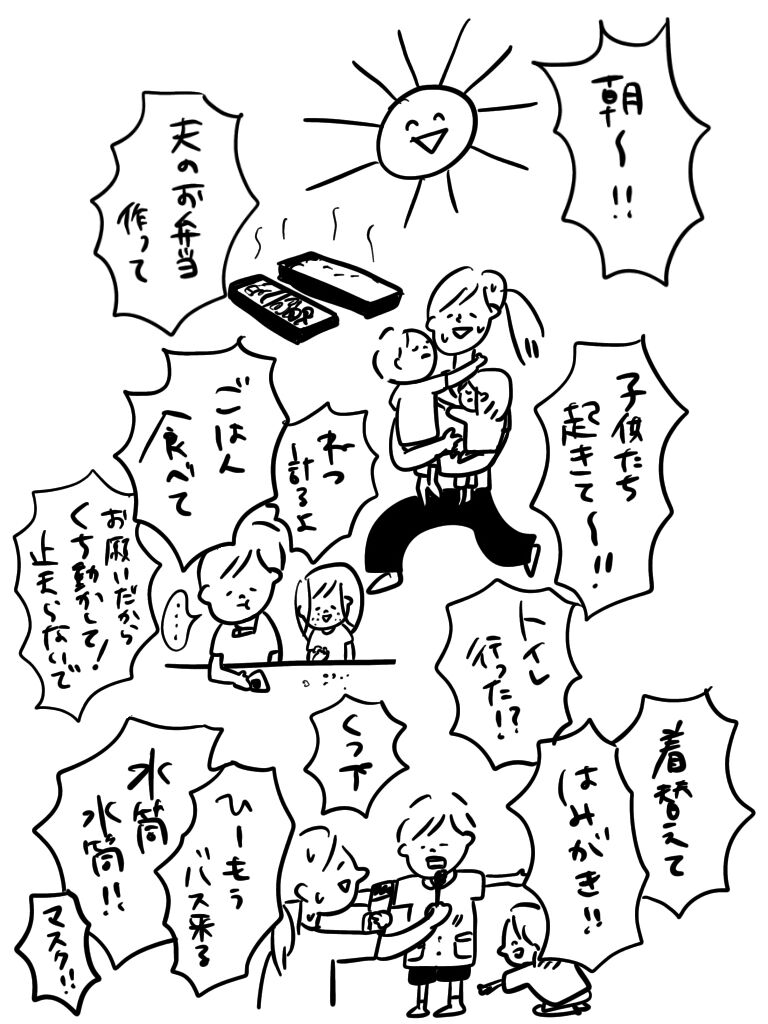 朝〜!!
夫のお弁当
作って
子供たち
起きて〜!!
ねつ
計るよ
ごはん
食べて
お願いだから
くち動かして!
止まらないで
……
トイレ
行った!?
着替えて
はみがき!!
くつ下
ひーもう
バス来る
水筒
水筒!!
マスク!!